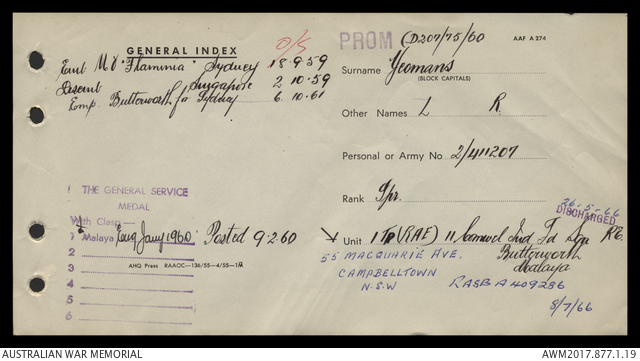 GENERAL INDEX
O/S
Emb MV "Flaminia" Sydney 18.9.59
Disemb Singapore 2.10.59
Emp. Butterworth for Sydney 6.10.61
1 THE GENERAL SERVICE
MEDAL
With Clasp—
1 Malaya Eng Jany 1960 Posted 9.2.60
2
3
4
5
6
AHQ Press RAAOC—136/55—4/55—1M
PROM (D207/75/60 AAF A 274
Surname Yeomans
(BLOCK CAPITALS)
Other Names L R.
Personal or Army No. 2/411207
Rank Spr.
26-5-66
DISCHARGED
Unit 1 Tp (RAE) 11 Ind Fd Sqn RE.
Butterworth
Malaya
55 MACQUARIE AVE.
CAMPBELLTOWN
N.S.W
RASB A 409286
8/7/66
AUSTRALIAN WAR MEMORIAL
AWM2017.877.1.19